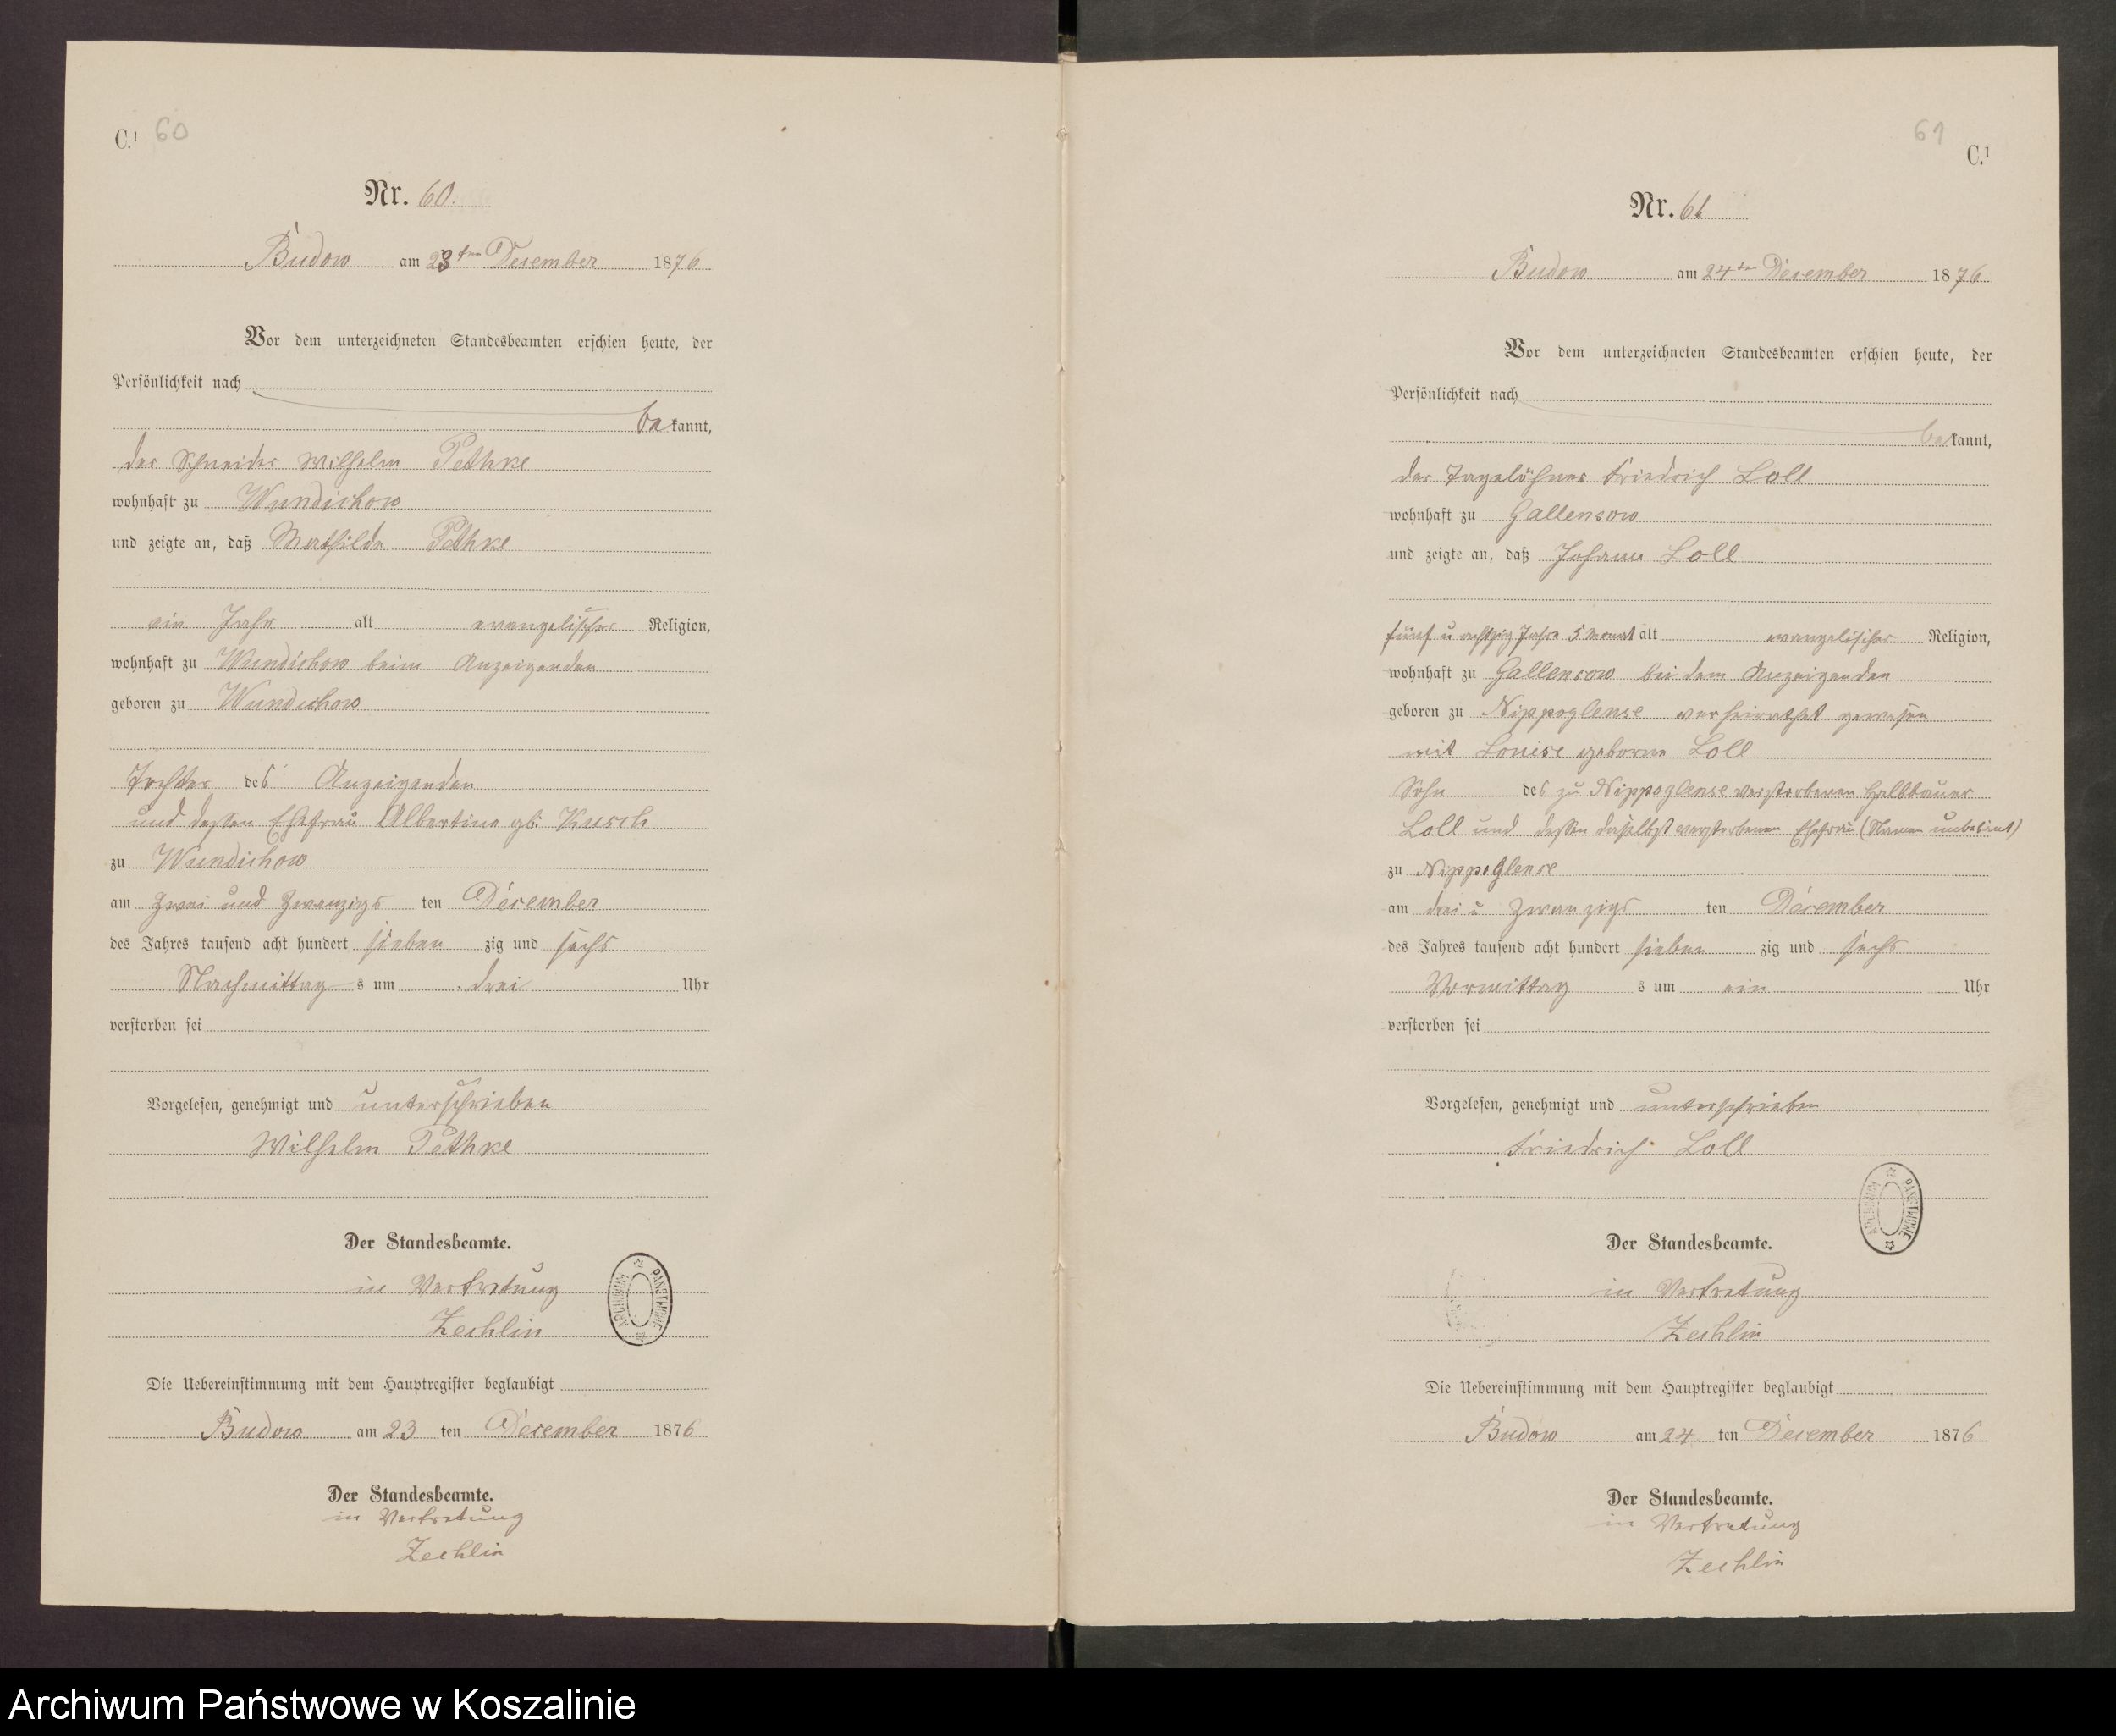 C.¹ 60
Nr. 60.
Budow am 23ten December 1876
Vor dem unterzeichneten Standesbeamten erschien heute, der
Persönlichkeit nach
bekannt,
der Schneider Wilhelm Pethke
wohnhaft zu Wundichow
und zeigte an, daß Mathilde Pethke
ein Jahr alt evangelischer Religion,
wohnhaft zu Wundichow beim Anzeigenden
geboren zu Wundichow
Tochter des Anzeigenden
und dessen Ehefrau Albertine gb. Kusch
zu Wundichow
am zwei und zwanzigs ten December
des Jahres tausend acht hundert sieben zig und sechs
Nachmittag s um drei Uhr
verstorben sei
Vorgelesen, genehmigt und unterschrieben
Wilhelm Pethke
Der Standesbeamte.
in Vertretung
Zechlin
ARCHIWUM PAŃSTWOWE
Die Uebereinstimmung mit dem Hauptregister beglaubigt
Budow am 23 ten December 1876
Der Standesbeamte.
in Vertretung
Zechlin
61 C.¹
Nr. 61
Budow am 24ten December 1876
Vor dem unterzeichneten Standesbeamten erschien heute, der
Persönlichkeit nach
bekannt,
der Tagelöhner Friedrich Loll
wohnhaft zu Gallensow
und zeigte an, daß Johann Loll
fünf u achtzig Jahre 5 Monat alt evangelischer Religion,
wohnhaft zu Gallensow bei dem Anzeigenden
geboren zu Nippoglense verheirathet gewesen
mit Louise geborne Loll
Sohn des zu Nippoglense verstorbenen Halbbauer
Loll und dessen daselbst verstorbenen Ehefrau (Namen unbekant)
zu Nippoglense
am drei u zwanzigs ten December
des Jahres tausend acht hundert sieben zig und sechs
Vormittag s um ein Uhr
verstorben sei
Vorgelesen, genehmigt und unterschrieben
Friedrich Loll
ARCHIWUM PAŃSTWOWE
Der Standesbeamte.
in Vertretung
Zechlin
Die Uebereinstimmung mit dem Hauptregister beglaubigt
Budow am 24 ten December 1876
Der Standesbeamte.
in Vertretung
Zechlin
Archiwum Państwowe w Koszalinie